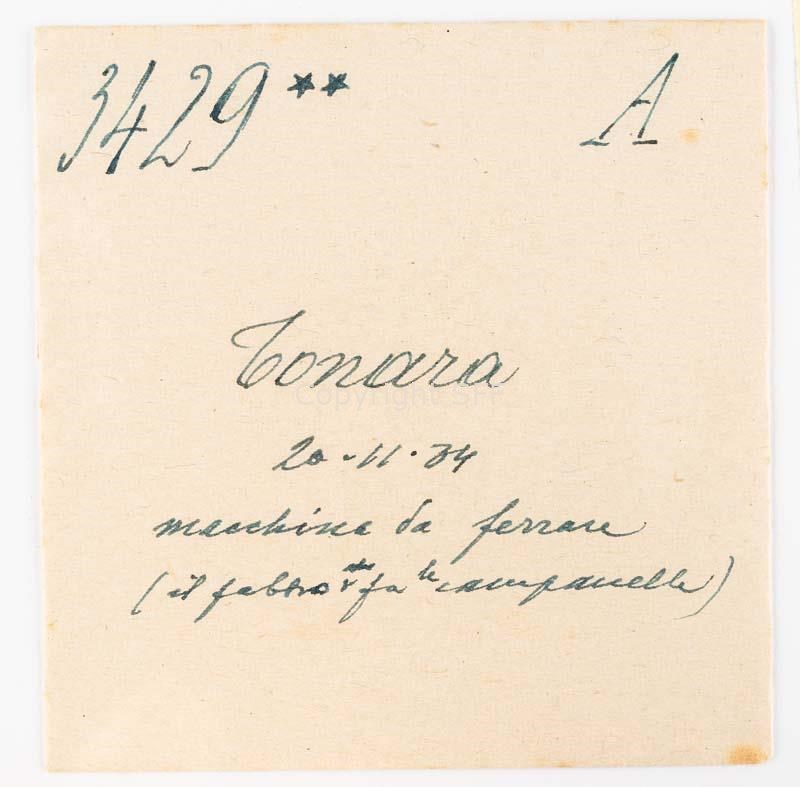 3429 ** A
Tonara
20-11-34
macchina da ferrare
(il fabbro fa le campanelle)
Copyright SFF